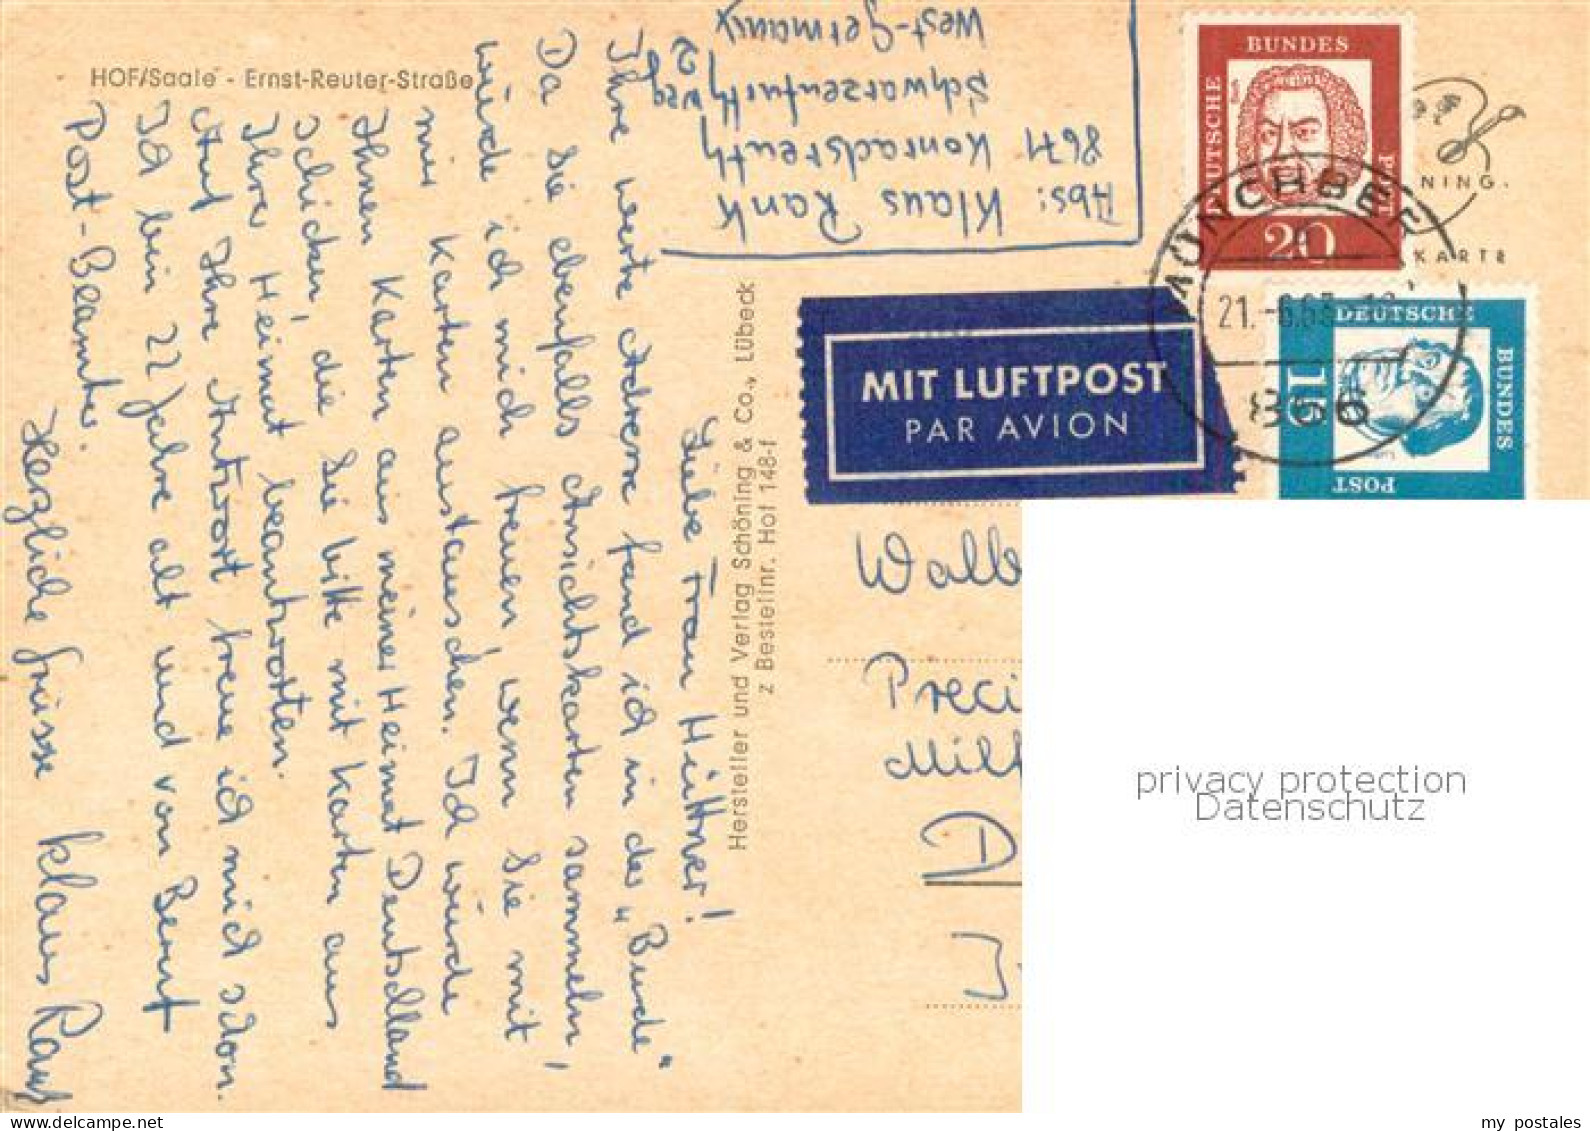 HOF/Saale - Ernst-Reuter-Straße
Liebe Frau Hüttner!
Ihre werte Adresse fand ich in der „Bunde“
Da Sie ebenfalls Ansichtskarten sammeln,
würde ich mich freuen, wenn Sie mit
mir Karten austauschen. Ich würde
Ihnen Karten aus meiner Heimat Deutschland
schicken, die Sie bitte mit Karten aus
Ihrer Heimat beantworten.
Auf Ihre Antwort freue ich mich schon.
Ich bin 22 Jahre alt und von Beruf
Post-Beamter.
Herzliche Grüsse Klaus Rank
Abs: Klaus Rank
8671 Konradsreuth
Schwarzenfurthweg
West-Germany
Hersteller und Verlag Schöning & Co., Lübeck
z Bestellnr. Hof 148-f
MIT LUFTPOST
PAR AVION
DEUTSCHE
BUNDES
POST
20
DEUTSCHE
BUNDES
POST
15
21.-6.63
866
NING.
KARTE
Walb
Preci
privacy protection
Datenschutz
my_postales